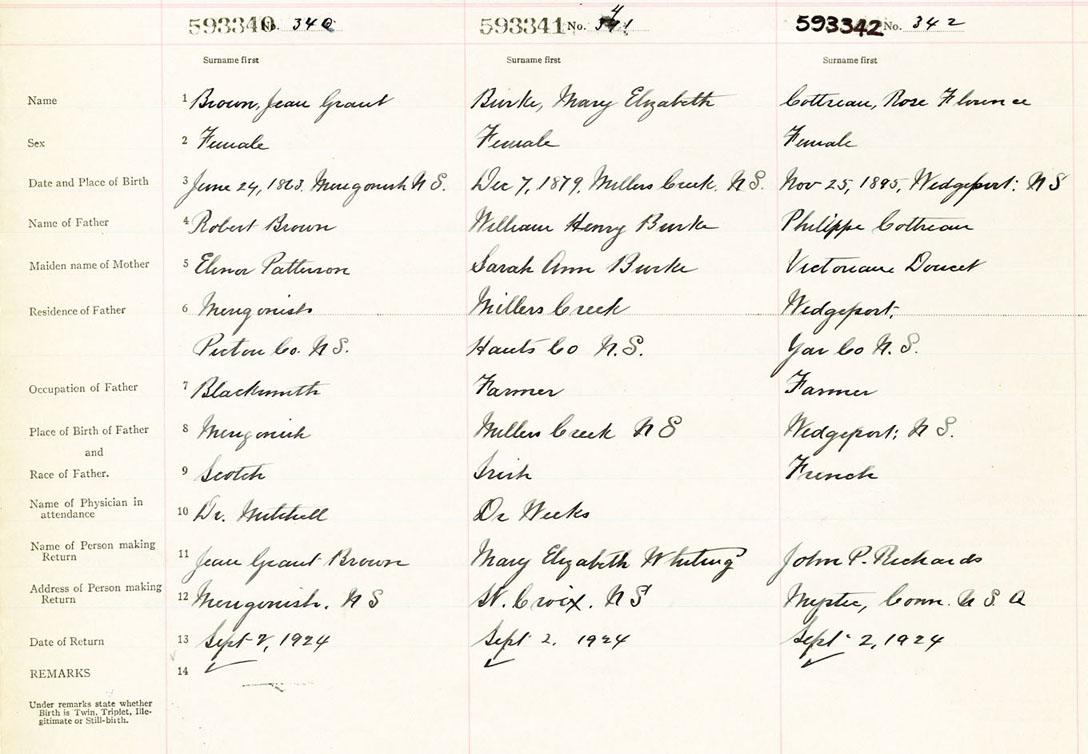 593340 No. 340 593341 No. 341 593342 No. 342
Surname first Surname first Surname first
Name 1 Brown, Jean Grant Burke, Mary Elizabeth Cottreau, Rose Florence
Sex 2 Female Female Female
Date and Place of Birth 3 June 24, 1863. Merigonish N S. Dec 7, 1879, Millers Creek. N S. Nov 25, 1895, Wedgeport: N S
Name of Father 4 Robert Brown William Henry Burke Philippe Cottreau
Maiden name of Mother 5 Elinor Patterson Sarah Ann Burke Doucet
Residence of Father 6 Millers Creek Wedgeport,
Pictou Co. N S. Hants Co N.S. Yar Co N.S.
Occupation of Father 7 Blacksmith Farmer Farmer
Place of Birth of Father 8 Merigonish Millers Creek N S Wedgeport: N S.
and
Race of Father. 9 Scotch Irish French
Name of Physician in
attendance 10 Dr. Mitchell Dr Weeks
Name of Person making
Return 11 Jean Grant Brown Mary Elizabeth Whiting John P. Richards
Address of Person making
Return 12 Merigonish. N S St. Croix. N S Mystic, Conn. U S A
Date of Return 13 Sept 2, 1924 Sept 2. 1924 Sept 2, 1924
REMARKS 14
Under remarks state whether
Birth is Twin, Triplet, Ille-
gitimate or Still-birth.